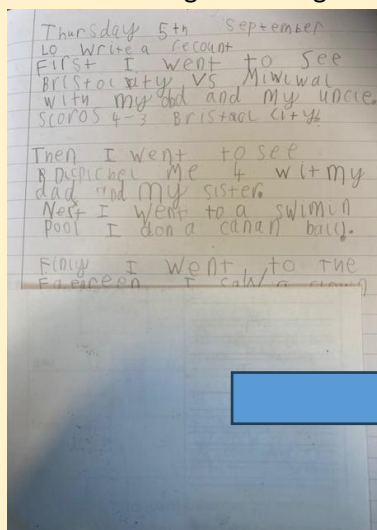 Thursday 5th September
LO Write a recount
First I went to see
Bristol city VS Miwwal
with my dad and my uncle.
Scoros 4-3 Bristaol City.
Then I went to see
Dispichel Me 4 wit my
dad and my sister.
Nest I went to a swimun
pool I don a canan ball.
Finly I went to the
I saw a